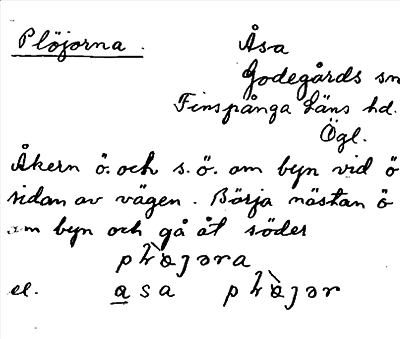 Plöjorna.
Åsa
Godegårds sn
Finspånga Läns hd.
Ögl.
Åkern ö. och s. ö. om byn vid ö
sidan av vägen. Börja nästan ö
om byn och gå åt söder
el. asa